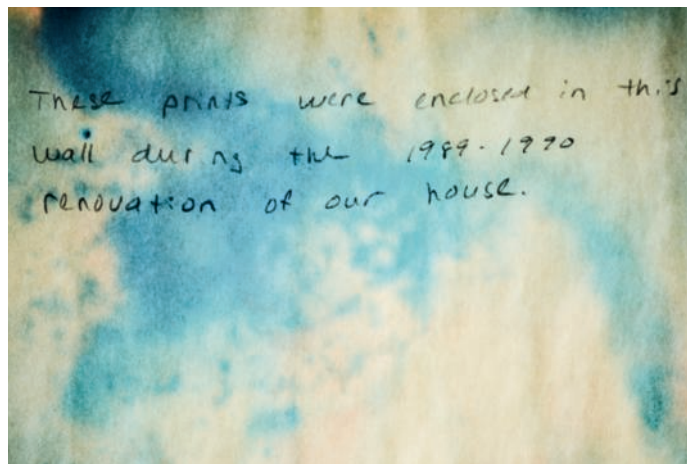 These prints were enclosed in this
wall during the 1989-1990
renovation of our house.